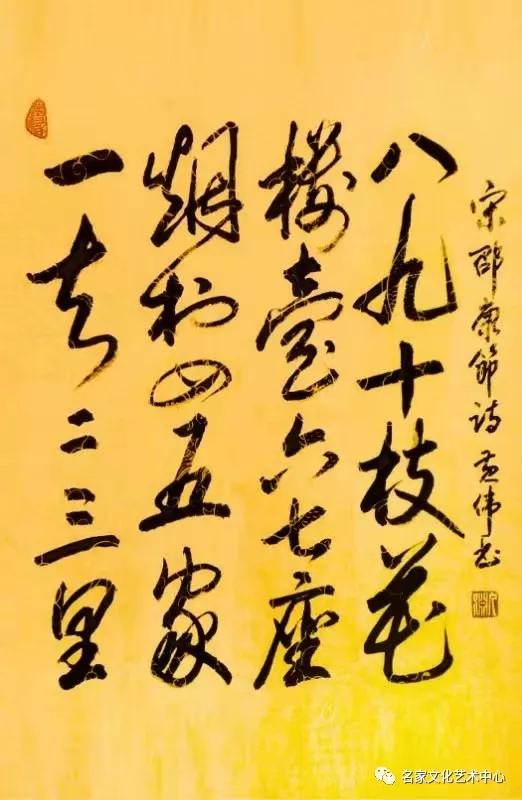 一去二三里
烟村四五家
樓臺六七座
八九十枝花
宋邵康節詩 伟书
名家文化艺术中心